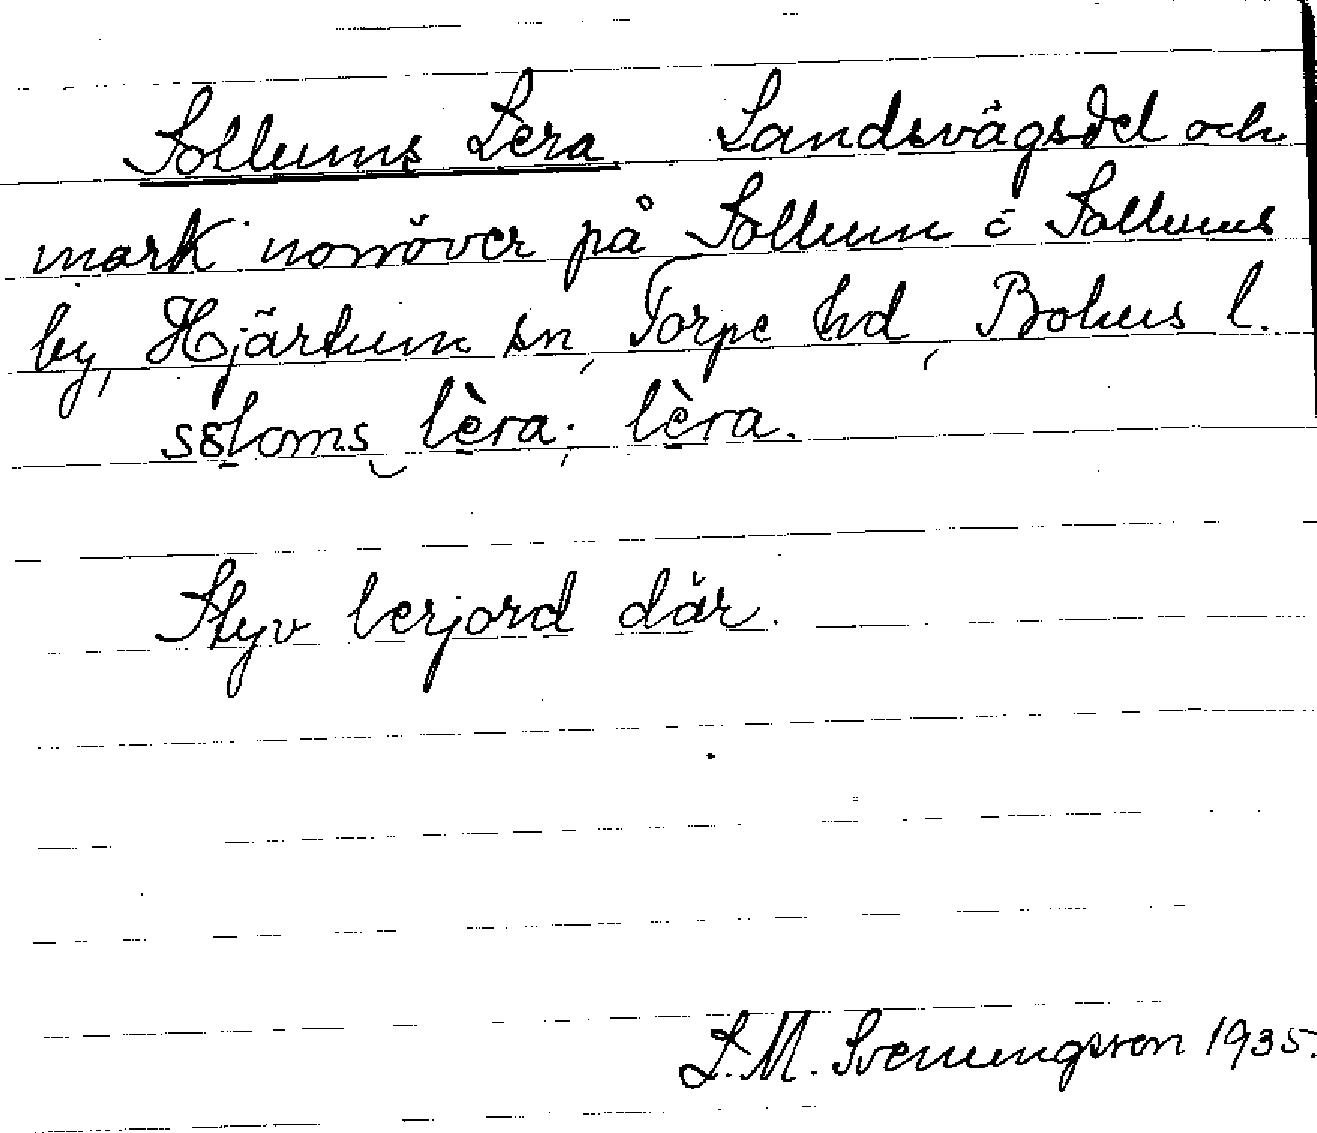 Sollums Lera Landsvägsdel och
mark norröver på Sollum i Sollums
by, Hjärtum sn, Torpe hd, Bohus l.
lèra; lèra.
Styv lerjord där.
L. M. Svenungsson 1935.